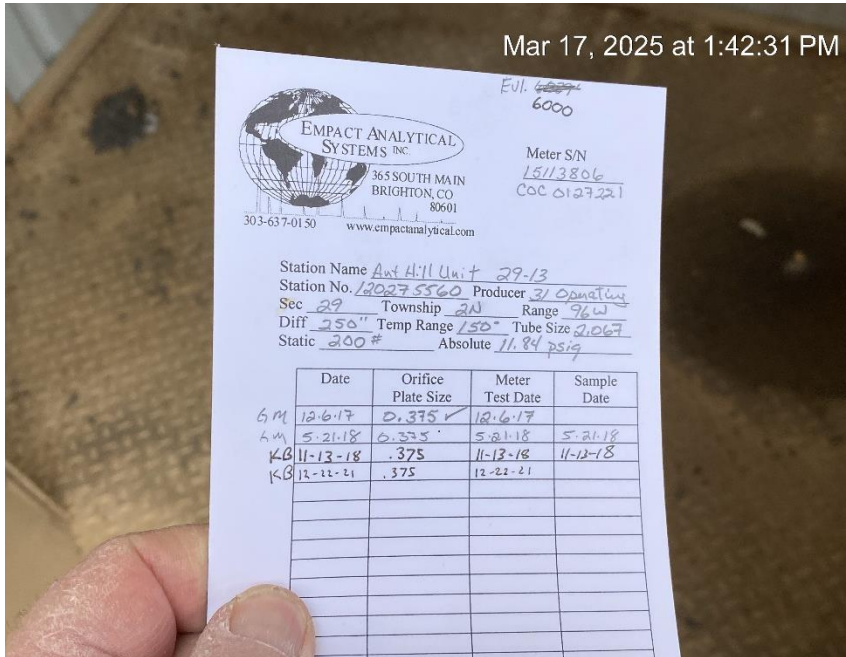 Mar 17, 2025 at 1:42:31 PM
Evl.
6000
EMPACT ANALYTICAL
SYSTEMS INC.
365 SOUTH MAIN
BRIGHTON, CO
80601
303-637-0150 www.empactanalytical.com
Meter S/N
15113806
COC 0127221
Station Name Ant Hill Unit 29-13
Station No. 120275560 Producer 31 Operating
Sec 29 Township 2N Range 96W
Diff 250" Temp Range 150° Tube Size 2.067
Static 200# Absolute 11.84 psig
Date Orifice Plate Size Meter Test Date Sample Date
GM 12.6.17 0.375 ✓ 12.6.17
GM 5.21.18 0.375 5.21.18 5.21.18
KB 11-13-18 .375 11-13-18 11-13-18
KB 12-22-21 .375 12-22-21